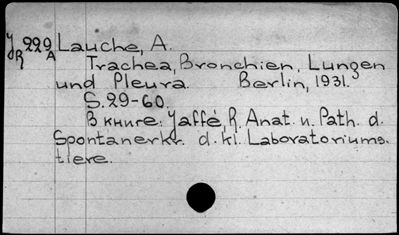 У 229 Lauche, A.
R A
Trachea, Bronchien, Lungen
und Pleura. Berlin, 1931.
S. 29-60.
В книге: Jaffé, R. Anat. u. Path. d.
Spontanerkr. d. kl. Laboratoriums-
tiere.